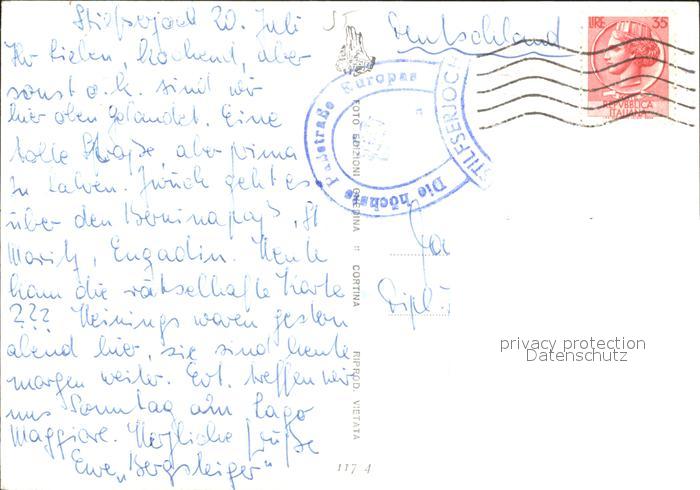 Stilfserjoch 20. Juli
Ihr Lieben, kochend, aber
sonst o.k. sind wir
hier oben gelandet. Eine
tolle Straße, aber prima
zu fahren. Zurück geht es
über den Berninapaß, St
Moritz, Engadin. Heute
kam die rätselhafte Karte
??? Heinings waren gestern
abend hier, sie sind heute
morgen weiter. Evt. treffen wir
uns Sonntag am Lago
Maggiore. Herzliche Grüße
Eure "Bergsteiger"
Deutschland
LIRE 35
REPUBBLICA
ITALIANA
STILFSERJOCH
Die höchste Paßstraße Europas
FOTO EDIZIONI GHEDINA - CORTINA
RIPROD. VIETATA
Dipl.-
privacy protection
Datenschutz